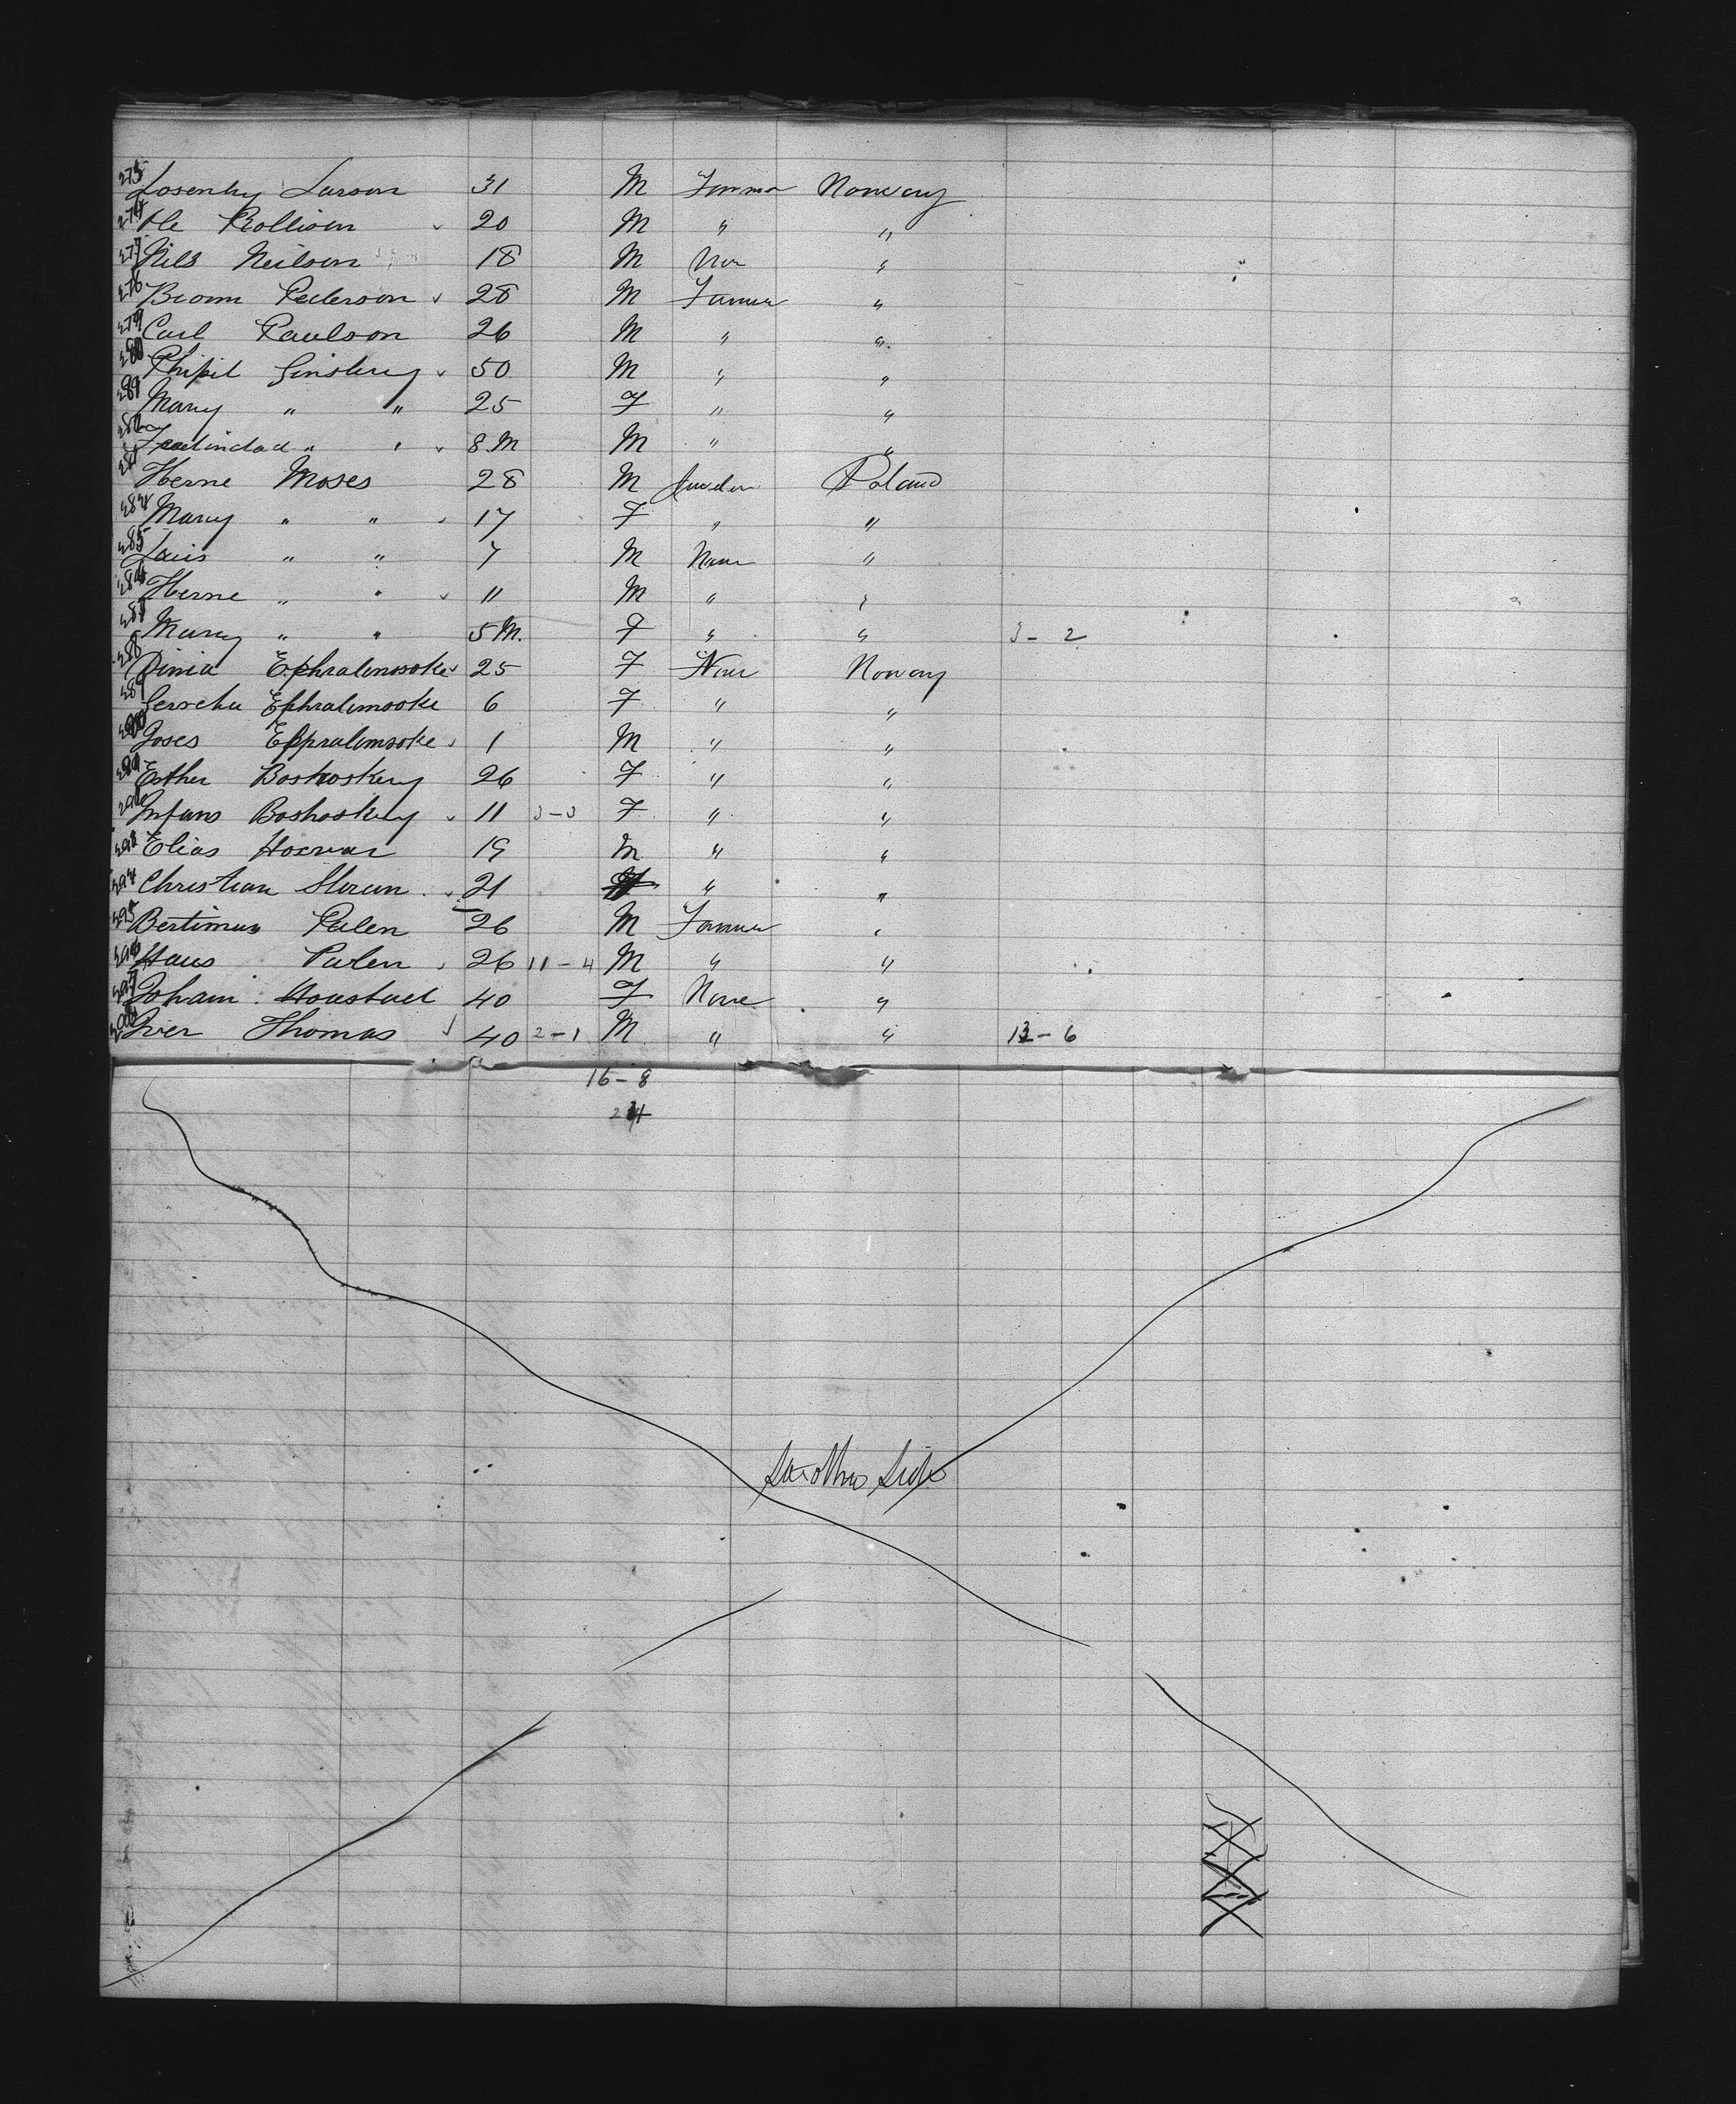 275 Losenby Larson 31 M Farmer Norway
276 Ole Rollison 20 M " "
277 Nils Neilson 18 M Non "
278 Bjorn Pederson 28 M Farmer "
279 Carl Paulson 26 M " "
280 Phipil Ginsberg 50 M " "
281 Mary " " 25 F " "
282 " " 8.M M " "
283 Herne Moses 28 M Poland
284 Mary " " 17 F " "
285 Lais " " 7 M None "
286 Herne " " 11 M " "
287 Mary " " 5 M. F " " 3-2
288 Dinia Ephralemsoke 25 F None Norway
289 Ephralemsoke 6 F " "
290 Joses Ephralemsoke 1 M " "
291 Esther Boshoskey 26 F " "
292 Infans Boshoskey 11 3-3 F " "
293 Elias 19 M " "
294 Christian 21 " "
295 Palen 26 M Farmer "
296 Hans Palen 26 11-4 M " "
297 Joham 40 F None "
298 Iver Thomas 40 2-1 M " " 12-6
16-8
24